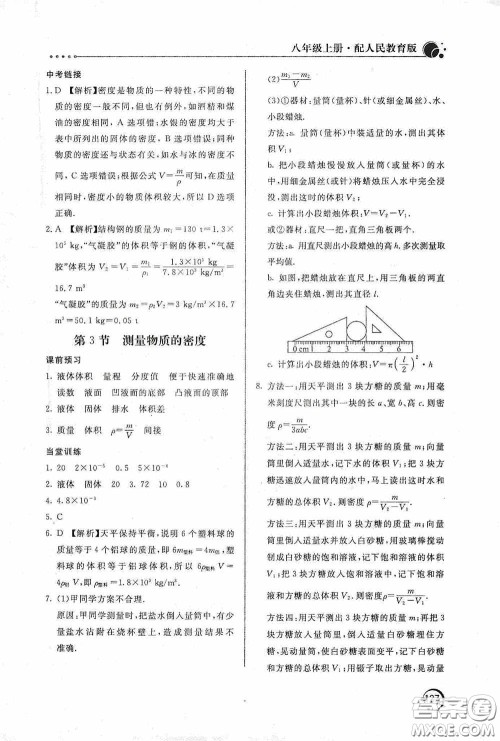 八年级上册·配人民教育版
中考链接
1. D 【解析】密度是物质的一种特性，不同物质密度
一般不同，但也有例外，例如酒精和煤
油的密度相同，故 A 选项错；水银的密度均大于
表中所列出的固体的密度，B 选项错误；同
种物质的密度还与状态有关，如水与冰的密度不
同，C 选项错误；根据公式 V=m/ρ 可知，质量相同时，
密度小的物质体积较大，所以 D 选项
正确.
2. A 【解析】结构钢的质量为 m₁=130 t=1.3×
10⁵ kg，“气凝胶”的体积等于钢的体积，“气凝
胶”体积为 V₂=V₁=m₁/ρ₁=1.3×10⁵ kg/7.8×10³ kg/m³=
16.7 m³
“气凝胶”的质量为 m₂=ρ₂V₂=3 kg/m³×
16.7 m³=50.1 kg≈0.05 t
第 3 节 测量物质的密度
课前预习
1. 液体体积 量程 分度值 便于快速准确地
读数 液面 凹液面的底部 凸液面的顶部
2. 液体 固体 排水 体积差
3. 质量 体积 ρ=m/V 间接
当堂训练
1. 20 2×10⁻⁵ 0.5 5×10⁻⁶
2. 液体 固体 20 3.72 10 0.8
4. 4.8×10⁻⁵
5. C
6. D 【解析】天平保持平衡，说明 6 个塑料球的
质量等于 4 个铝球的质量，即 6m塑料=4m铝，塑
料球的体积等于铝球的体积，所以 6ρ塑料V=
4ρ铝V，即 ρ塑料=1.8×10³ kg/m³
7. (1)甲同学方案不合理.
原因：甲同学测量时，把盐水倒入量筒中，有少
量盐水沾附在烧杯壁上，造成测量结果不准
确.
(2) m₁-m₂/V
(3)①器材：量筒(量杯)、针(或细金属丝)、水、
小段蜡烛.
方法：a. 量筒(量杯)中装适量的水，测出其体
积 V₁；
b. 把小段蜡烛慢慢放入量筒(或量杯)的水
中，用细金属丝(或针)将蜡烛压入水中完全浸
没，测出这时的体积 V₂.
c. 计算出小段蜡烛的体积 V=V₂-V₁
或②器材：直尺、三角板、小段蜡烛.
方法：a. 用直尺测出小蜡烛的高 h，多次测量取
平均值.
b. 如图，把蜡烛放在直尺上，用三角板的两直
角边夹住蜡烛，测出其直径 l.
0cm 1 2 3 4 5 6
c. 计算出小段蜡烛的体积 V=π(l/2)²·h
8. 方法一：用天平测出 3 块方糖的质量 m；用毫
米刻度尺测出一块方糖的长 a、宽 b、高 c，则密
度 ρ=m/3abc.
方法二：用天平测出 3 块方糖的质量 m；向量
筒里倒入适量水，记下水的体积 V₁；把 3 块方糖
迅速放入量筒内的水中，马上读出这时水与方
糖的总体积 V₂. 则密度 ρ=m/V₂-V₁.
方法三：用天平测出 3 块方糖的质量 m；向量
筒里倒入适量水并放入白砂糖，用玻璃棒搅动
制成白砂糖的饱和溶液，记下饱和溶液的体积
V₁；把 3 块方糖放入饱和溶液中，记下饱和溶液
和方糖的总体积 V₂，则密度 ρ=m/V₂-V₁.
方法四：用天平测出 3 块方糖的质量 m；把白
砂糖倒入量筒，倒入适量白砂糖后，
晃动量筒，使白砂糖表面变平，记下体
积 V₁；把 3 块方糖埋入白砂糖中，晃动量
127